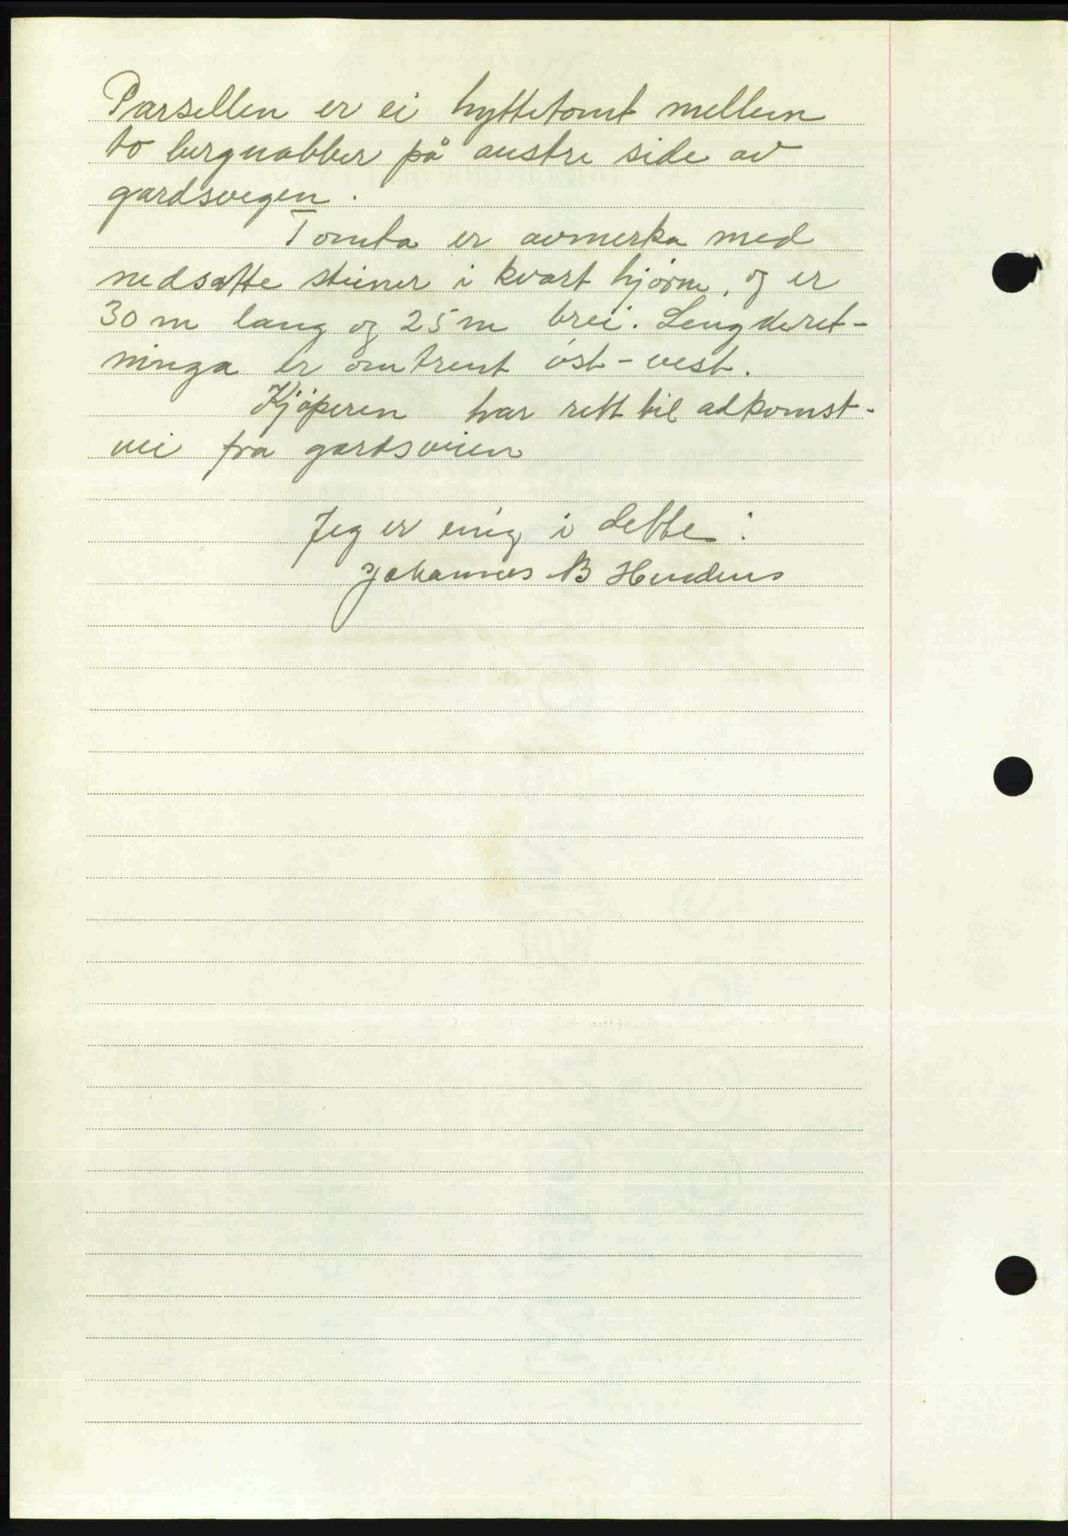 Parsellen er ei hyttetomt mellem
to bergnabber på austre side av
gardsvegen.
Tomta er avmerka med
nedsatte steiner i kvart hjørne, og er
30 m lang og 25 m brei. Lengderet-
ninga er omtrent øst-vest.
Kjøperen har rett til adkomst-
vei fra gardsveien
Jeg er enig i dette:
Johannes B